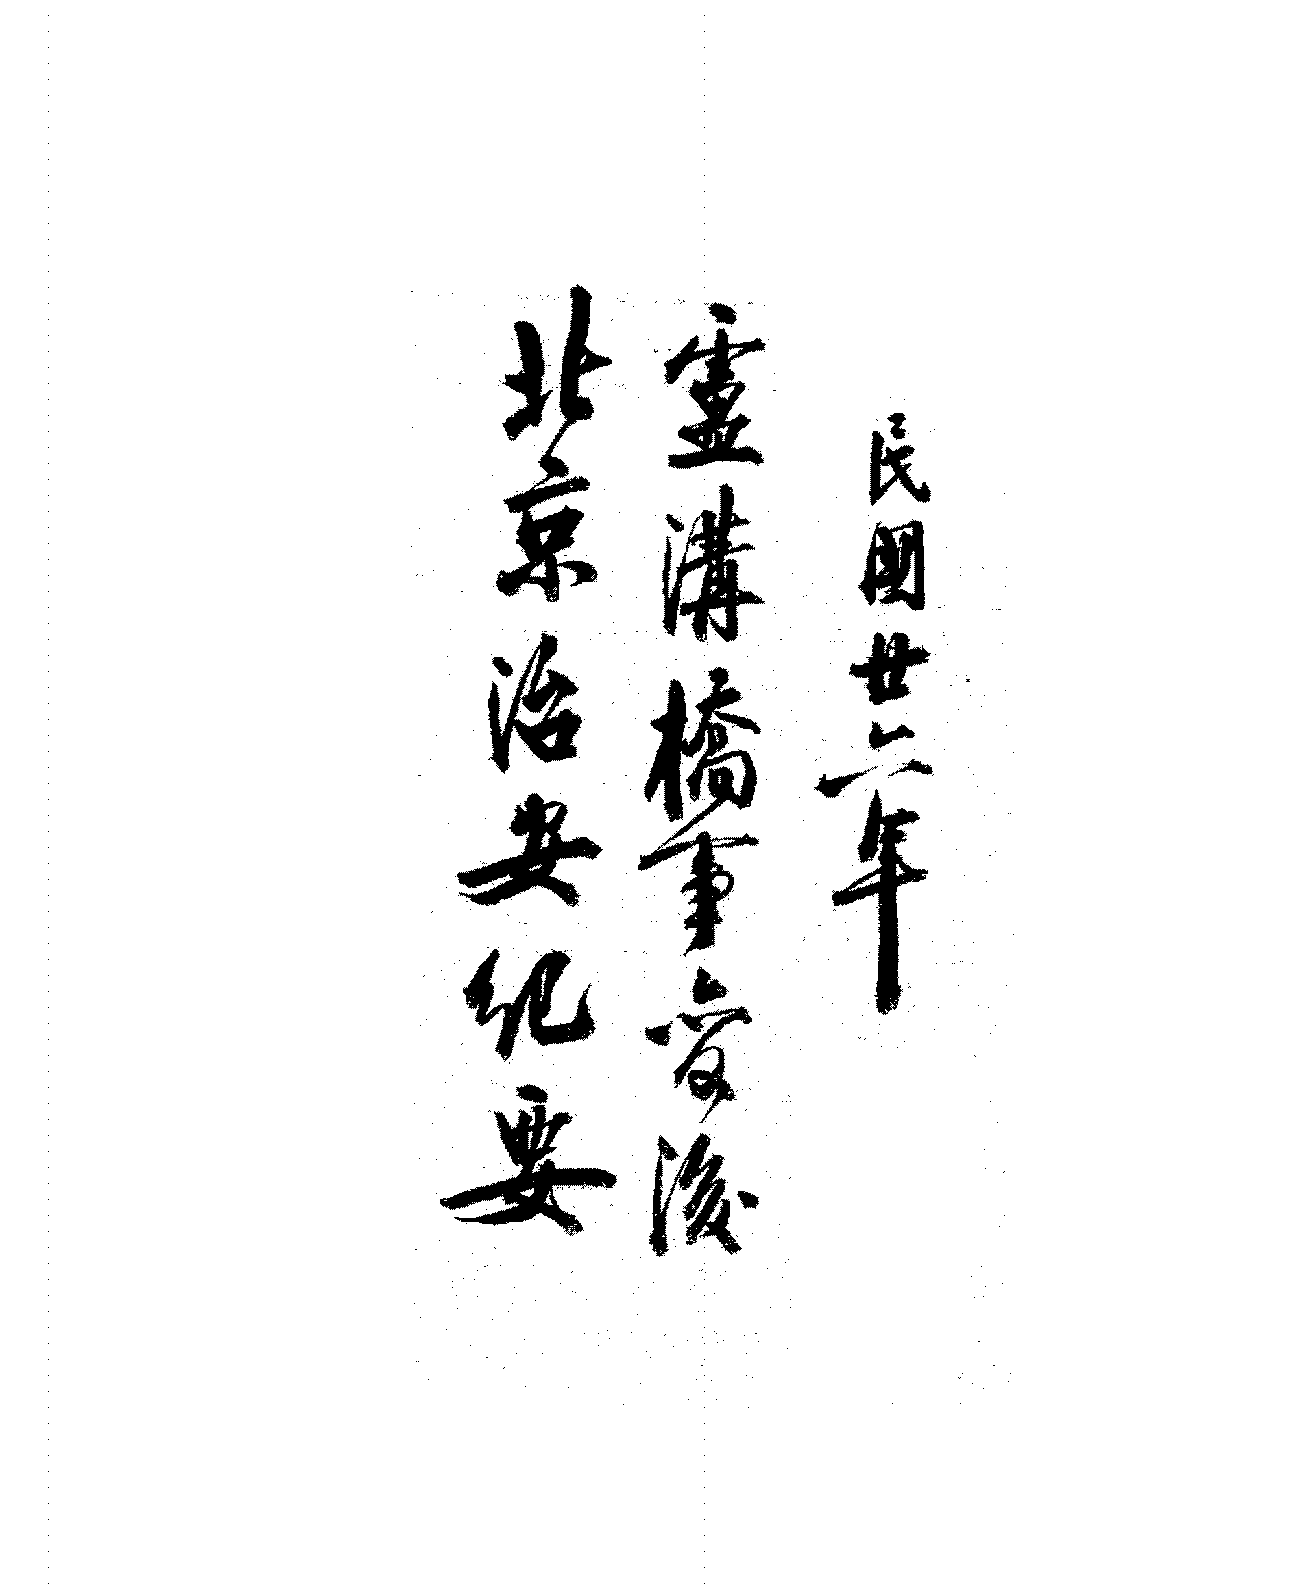 民国廿六年
盧溝橋事変後
北京治安纪要